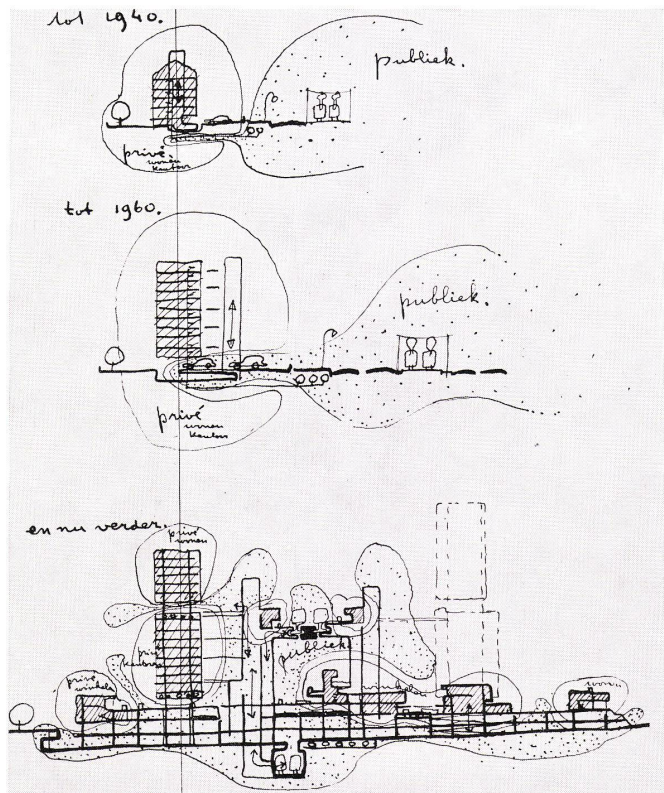 tot 1940.
publiek.
privé
wonen
kantoor
tot 1960.
publiek.
privé
wonen
kantoor
en nu verder.
privé
wonen
privé
kantoor
publiek
privé
winkels
wonen